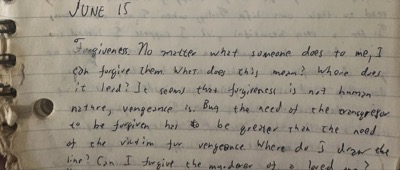 JUNE 15
Forgiveness. No matter what someone does to me, I
can forgive them What does this mean? Where does
it lead? It seems that forgiveness is not human
nature, vengeance is. But the need of the transgressor
to be forgiven has to be greater than the need
of the victim for vengeance Where do I draw the
line? Can I forgive the murderer of a loved one?